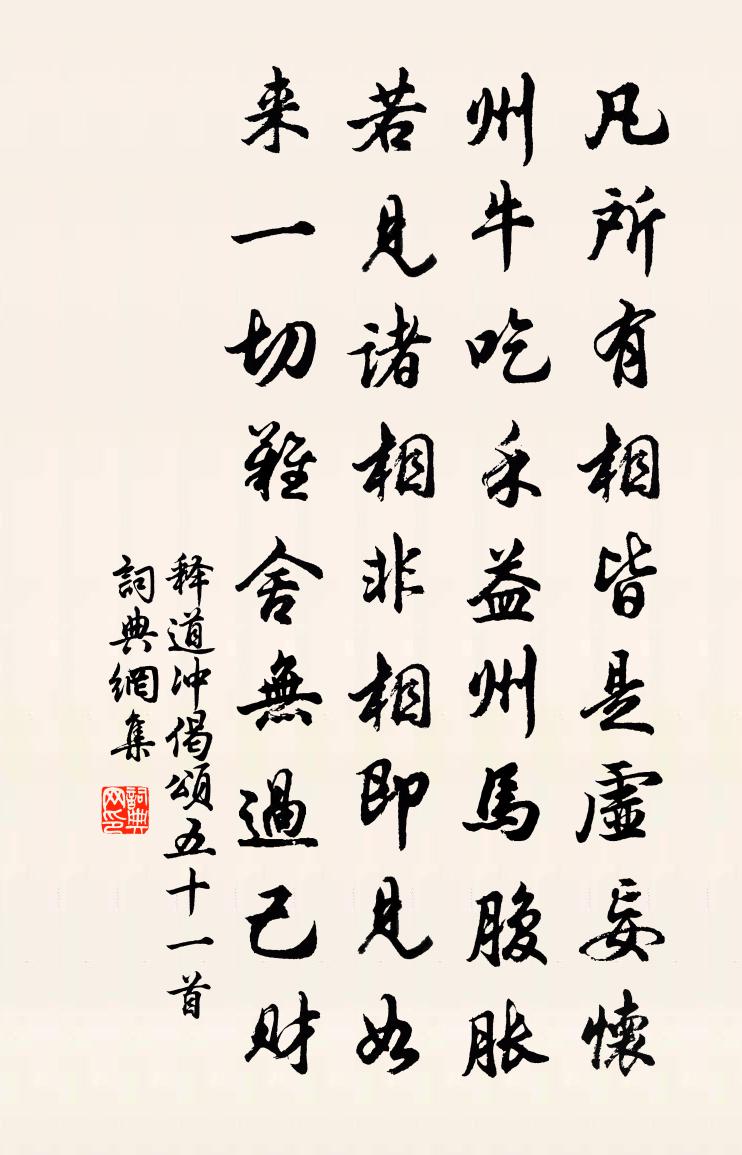 凡所有相皆是虛妄懷
州牛吃禾益州馬腹胀
若見诸相非相即見如
来一切難舍無過己财
释道冲偈頌五十一首
詞典網集
詞典网印